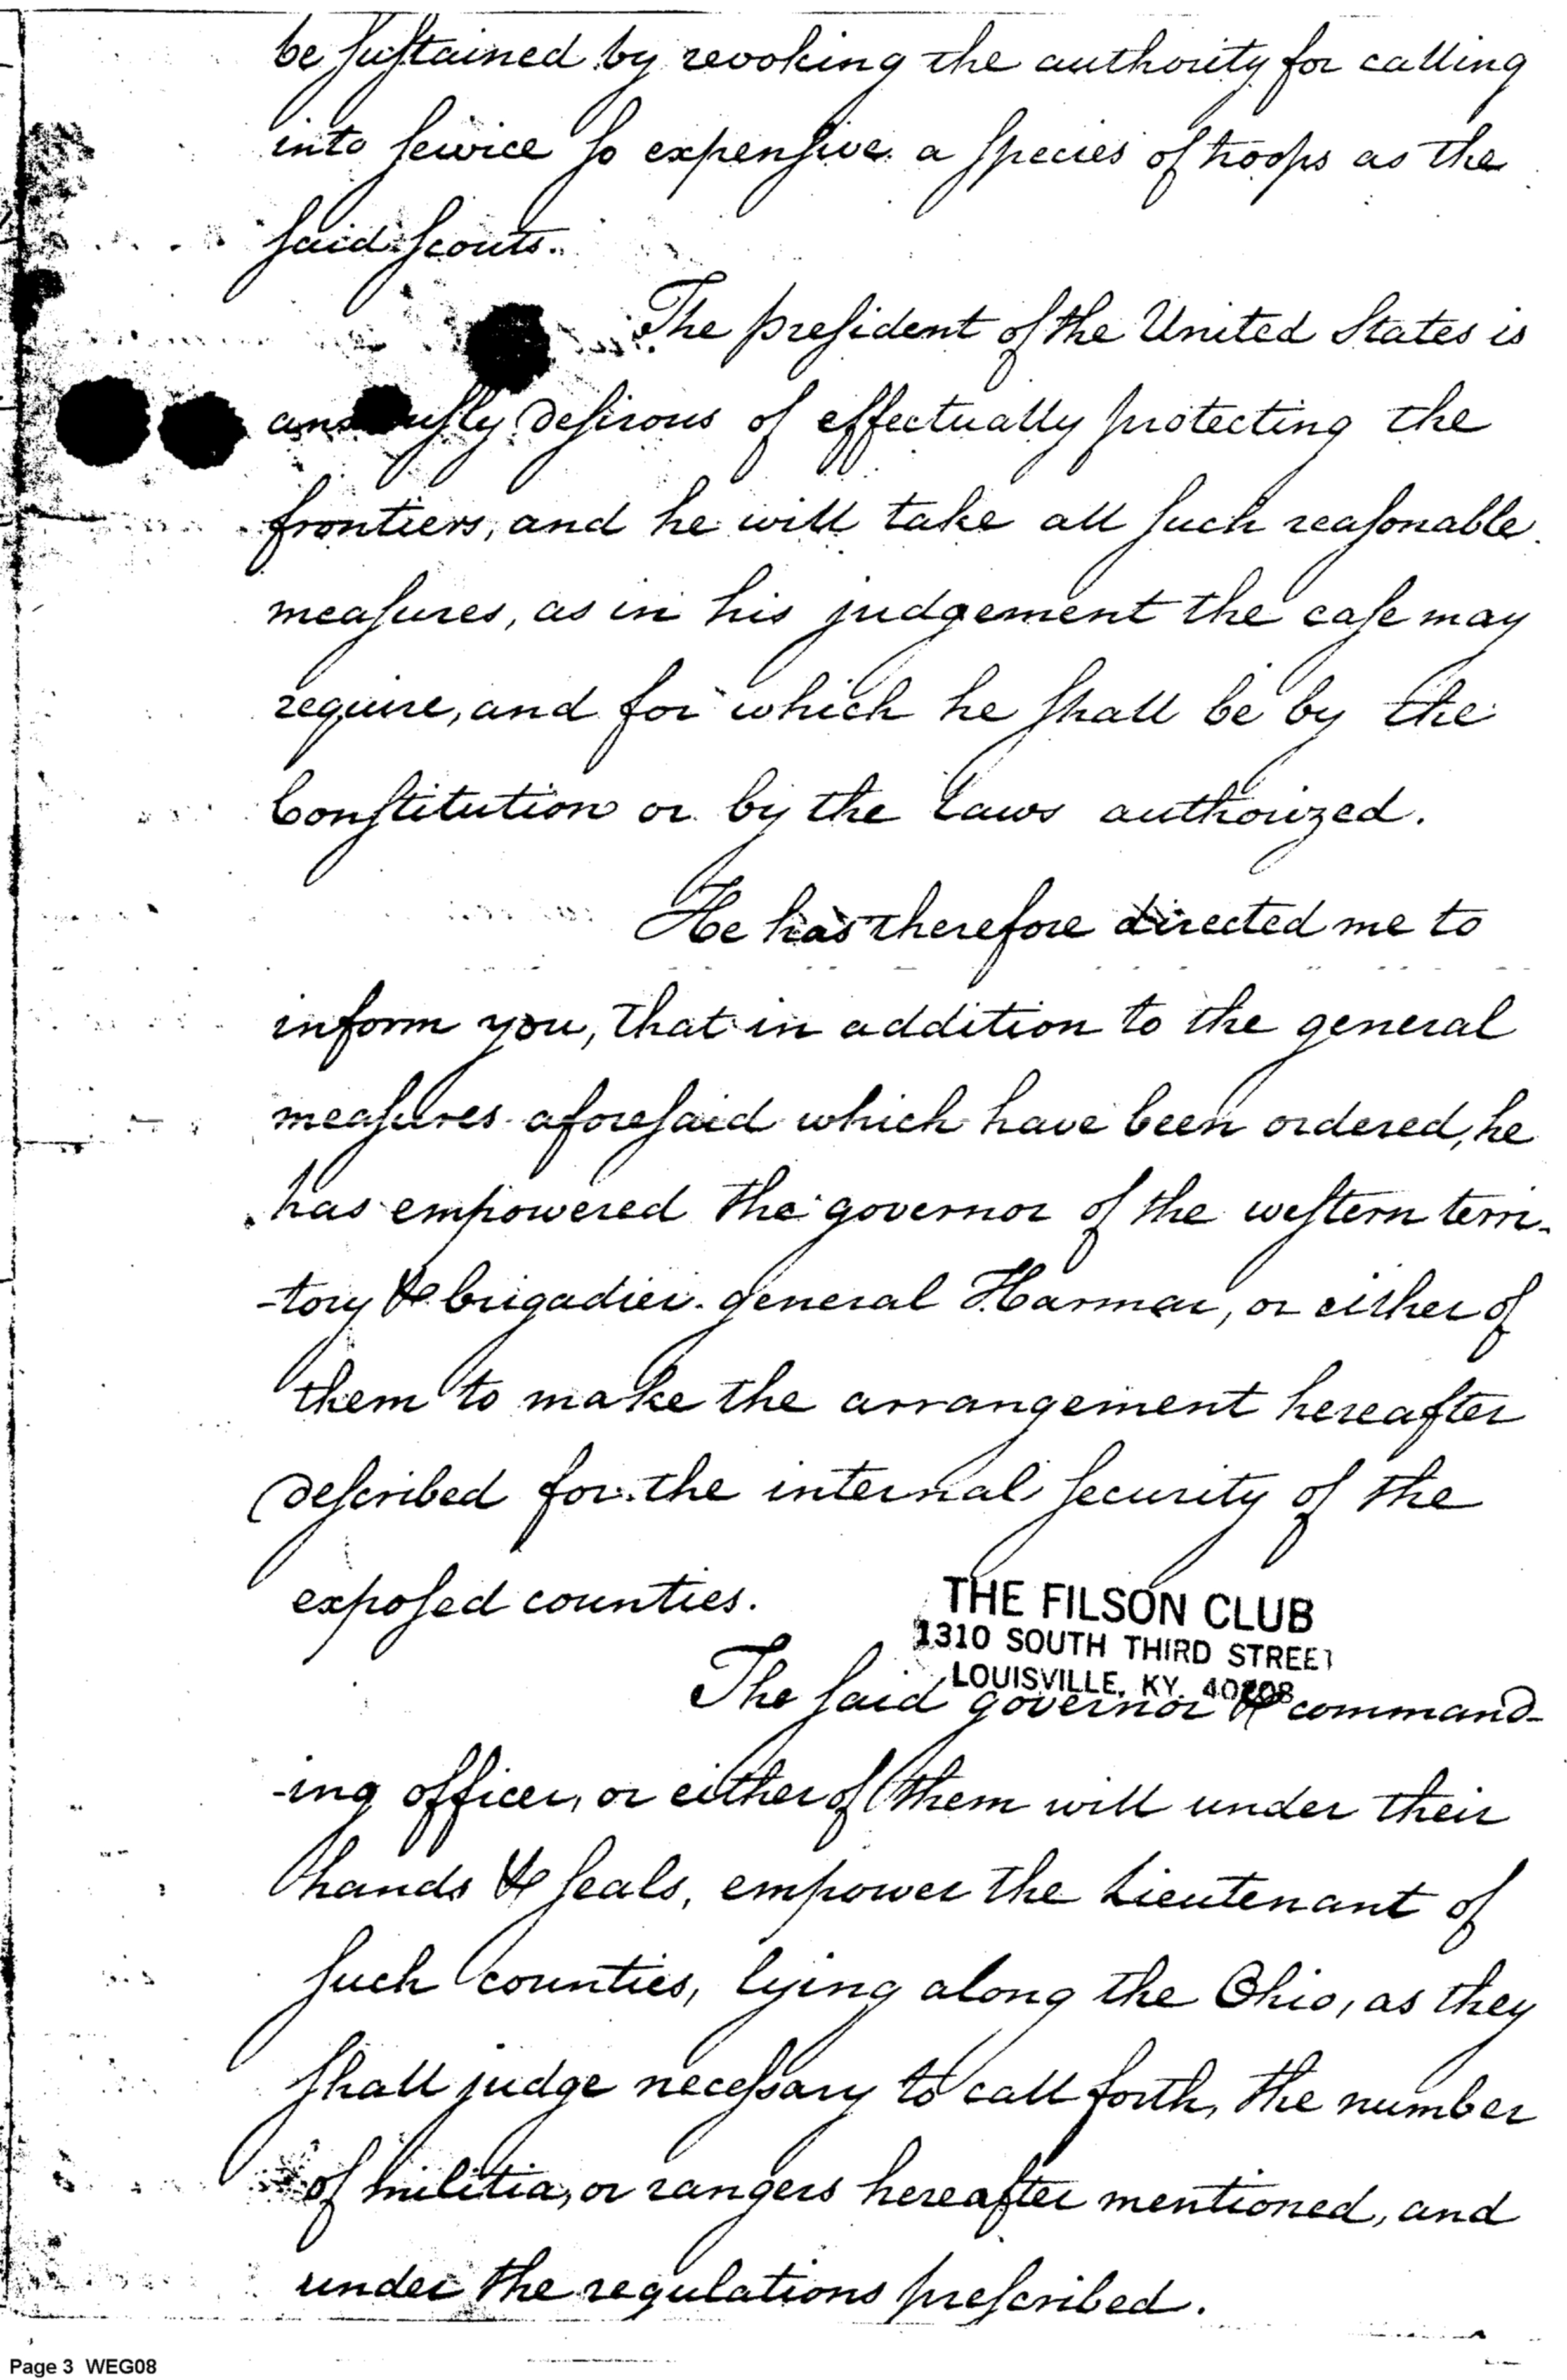 be sustained by revoking the authority for calling
into service so expensive a species of troops as the
said scouts.
The president of the United States is
anxiously desirous of effectually protecting the
frontiers, and he will take all such reasonable
measures, as in his judgement the case may
require, and for which he shall be by the
Constitution or by the Laws authorized.
He has therefore directed me to
inform you, that in addition to the general
measures aforesaid which have been ordered, he
has empowered the governor of the western terri-
-tory & brigadier general Harmar, or either of
them to make the arrangement hereafter
described for the internal security of the
exposed counties.
THE FILSON CLUB
1310 SOUTH THIRD STREET
LOUISVILLE, KY. 40208
The said governor & command-
-ing officer, or either of them will under their
hands & seals, empower the Lieutenant of
such counties, lying along the Ohio, as they
shall judge necessary to call forth, the number
of militia, or rangers hereafter mentioned, and
under the regulations prescribed.
Page 3 WEG08